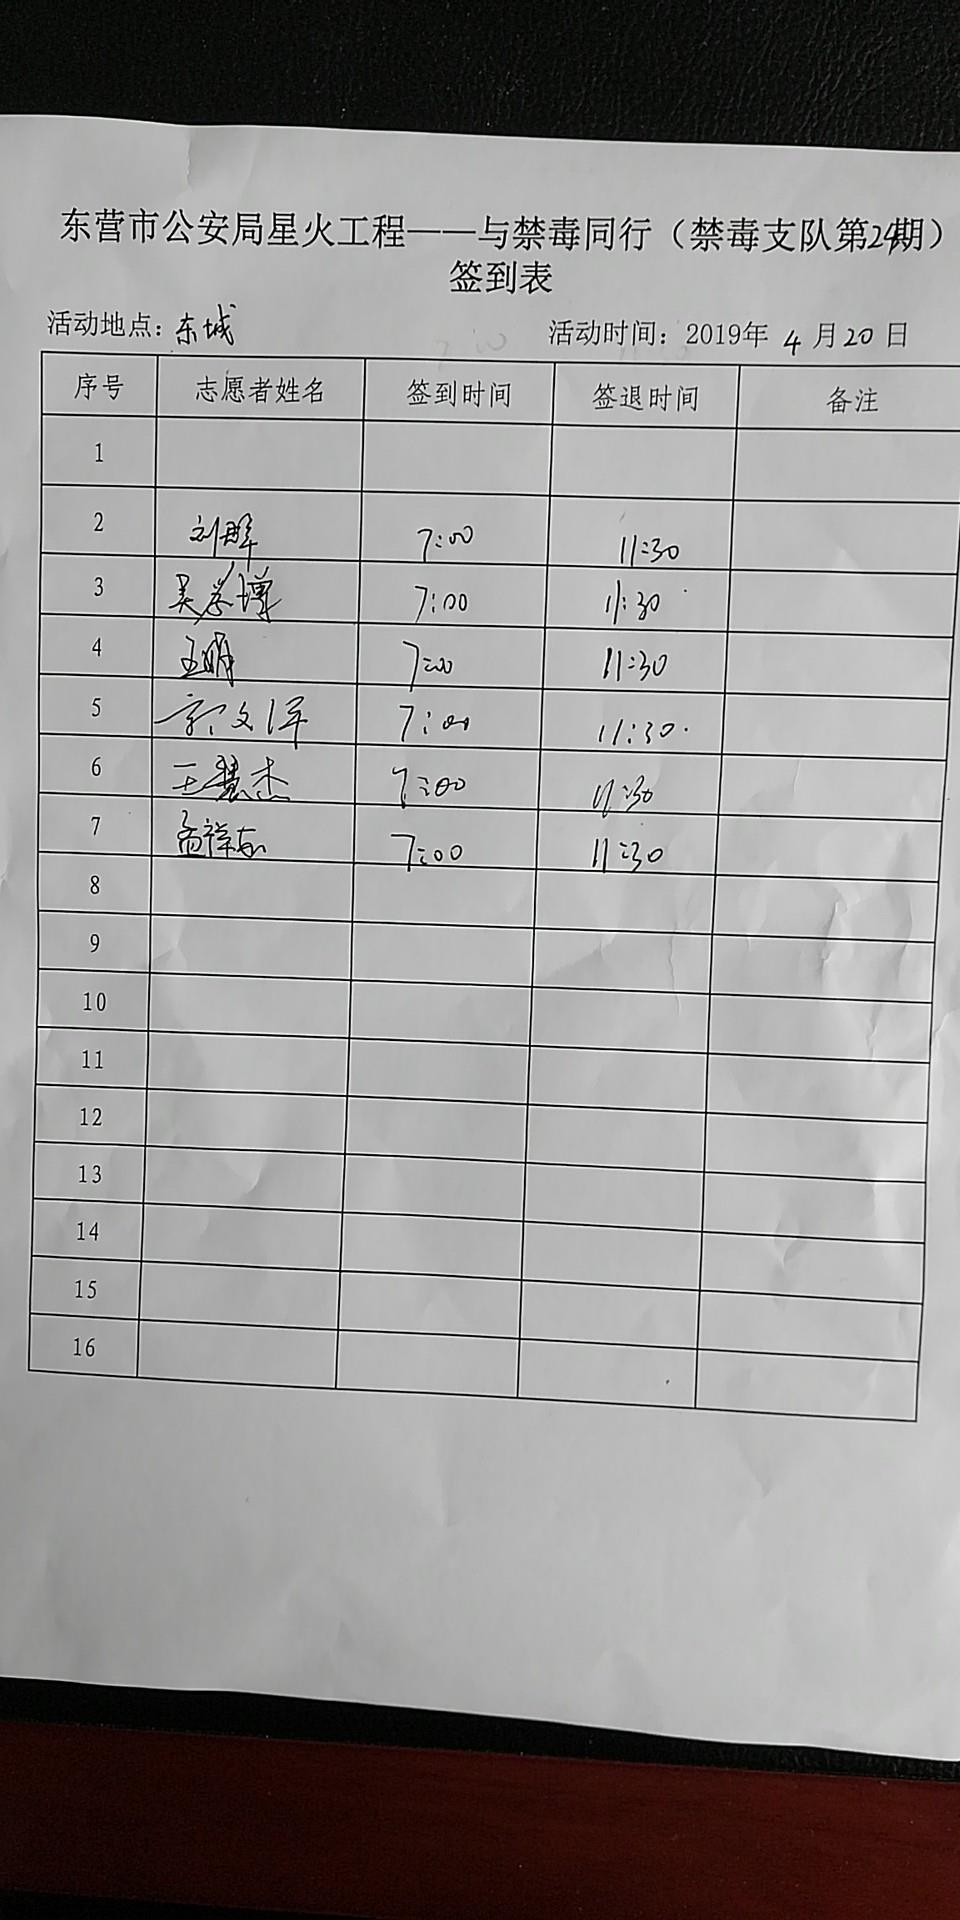 东营市公安局星火工程——与禁毒同行（禁毒支队第24期）
签到表
活动地点：东城 活动时间：2019年 4 月 20 日
序号 志愿者姓名 签到时间 签退时间 备注
1
2 刘 7:00 11:30
3 7:00 11:30
4 王明 7:00 11:30
5 7:00 11:30
6 王慧杰 7:00 11:30
7 孟祥东 7:00 11:30
8
9
10
11
12
13
14
15
16